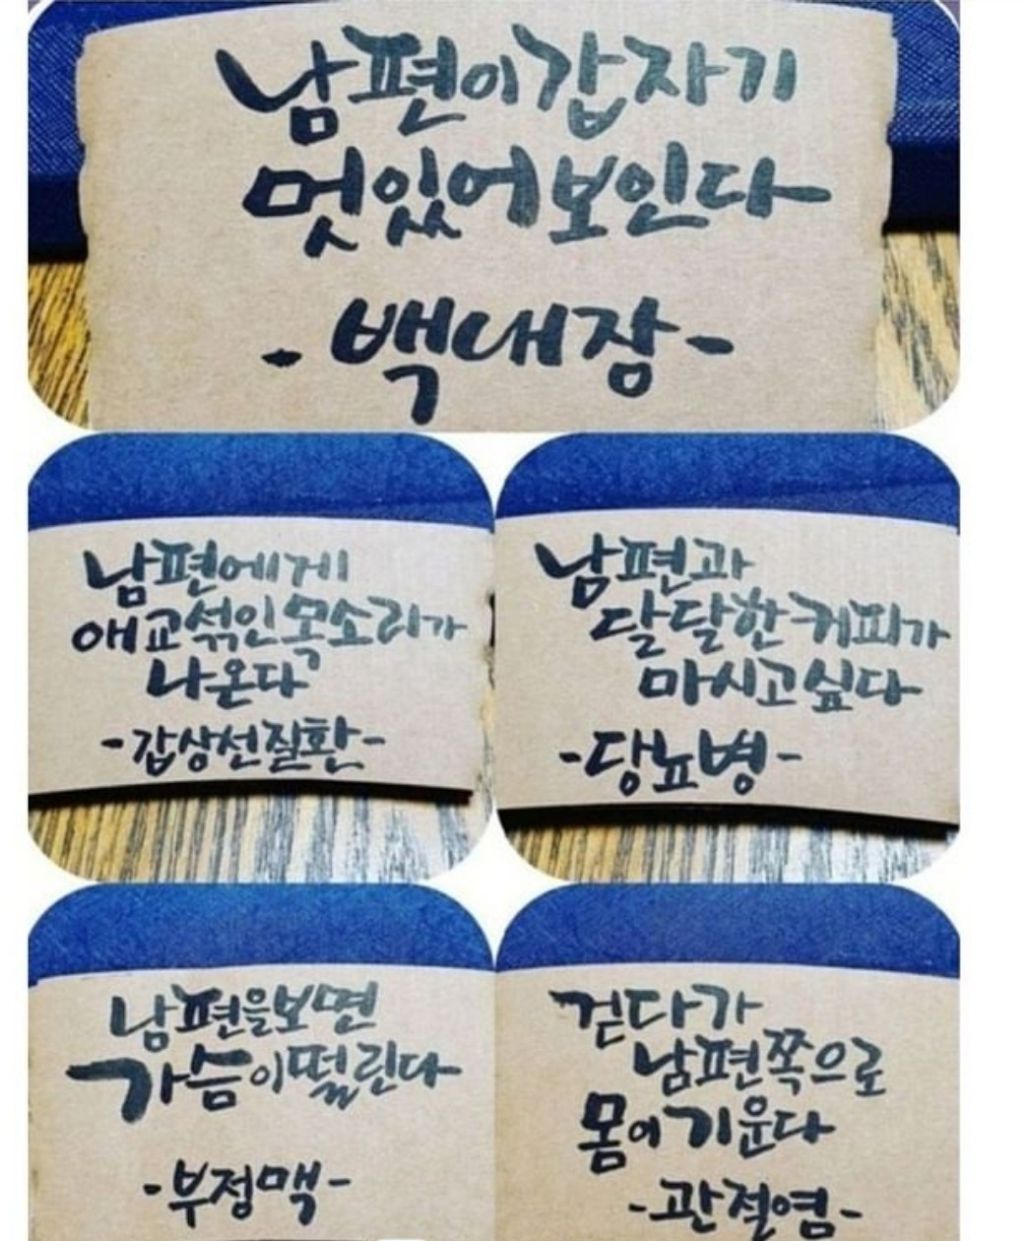 남편이갑자기
멋있어보인다
-백내장-
남편에게
애교섞인목소리가
나온다
-갑상선질환-
남편과
달달한커피가
마시고싶다
-당뇨병-
남편을보면
가슴이떨린다
-부정맥-
걷다가
남편쪽으로
몸이기운다
-관절염-